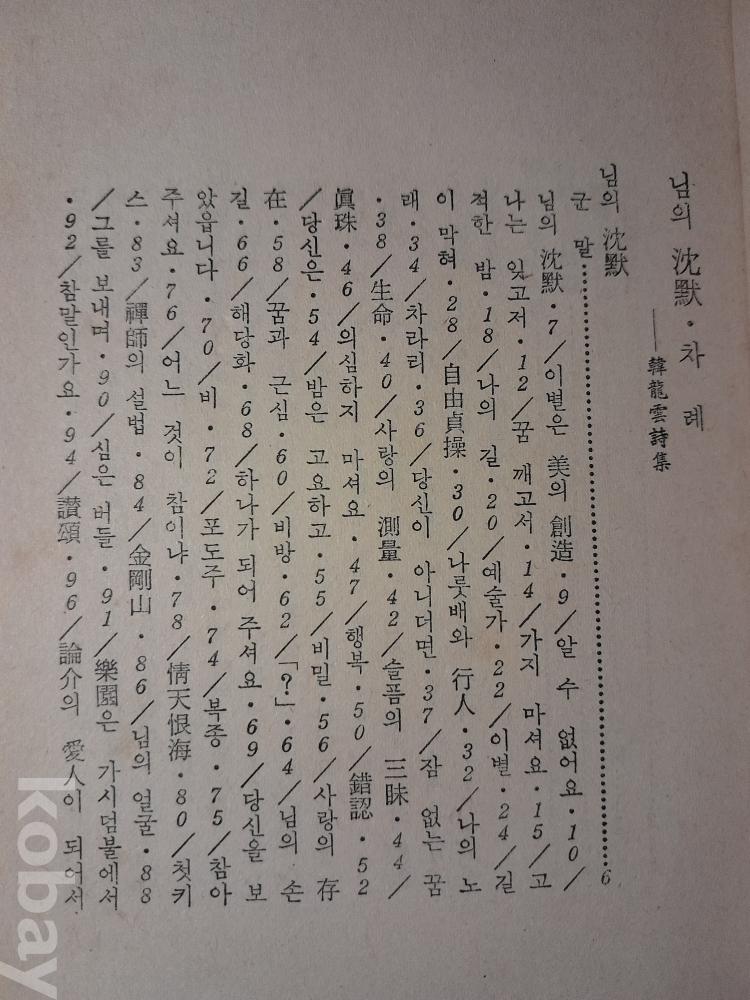 님의 沈默·차 례
──韓龍雲詩集
님의 沈默
군 말……………………………………………6
님의 沈默·7／이별은 美의 創造·9／알 수 없어요·10／
나는 잊고저·12／꿈 깨고서·14／가지 마셔요·15／고
적한 밤·18／나의 길·20／예술가·22／이별·24／길
이 막혀·28／自由貞操·30／나룻배와 行人·32／나의 노
래·34／차라리·36／당신이 아니더면·37／잠 없는 꿈
·38／生命·40／사랑의 測量·42／슬픔의 三昧·44／
眞珠·46／의심하지 마셔요·47／행복·50／錯認·52
／당신은·54／밤은 고요하고·55／비밀·56／사랑의 存
在·58／꿈과 근심·60／비방·62／「?」·64／님의 손
길·66／해당화·68／하나가 되어 주셔요·69／당신을 보
았읍니다·70／비·72／포도주·74／복종·75／참아
주셔요·76／어느 것이 참이냐·78／情天恨海·80／첫키
스·83／禪師의 설법·84／金剛山·86／님의 얼굴·88
／그를 보내며·90／심은 버들·91／樂園은 가시덤불에서
·92／참말인가요·94／讚頌·96／論介의 愛人이 되어서
kobay